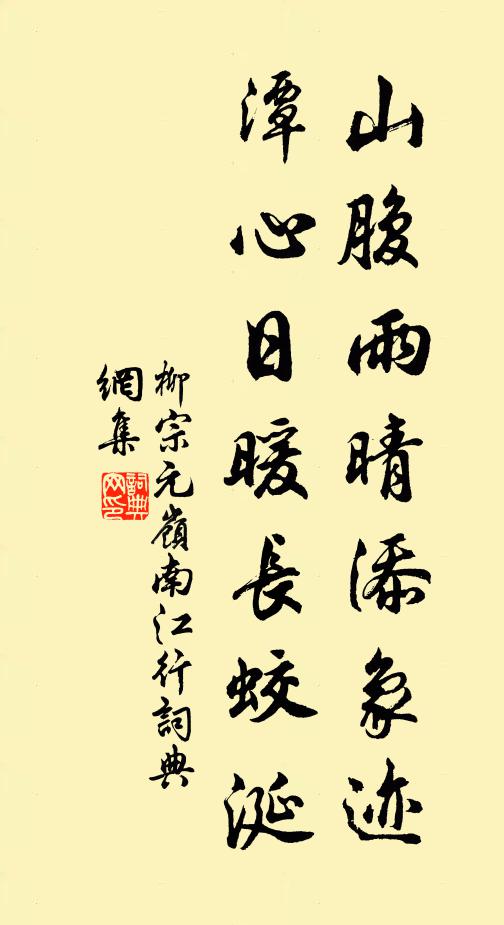 山腹雨晴添象迹
潭心日暖長蛟涎
柳宗元嶺南江行詞典
網集
詞典
网印